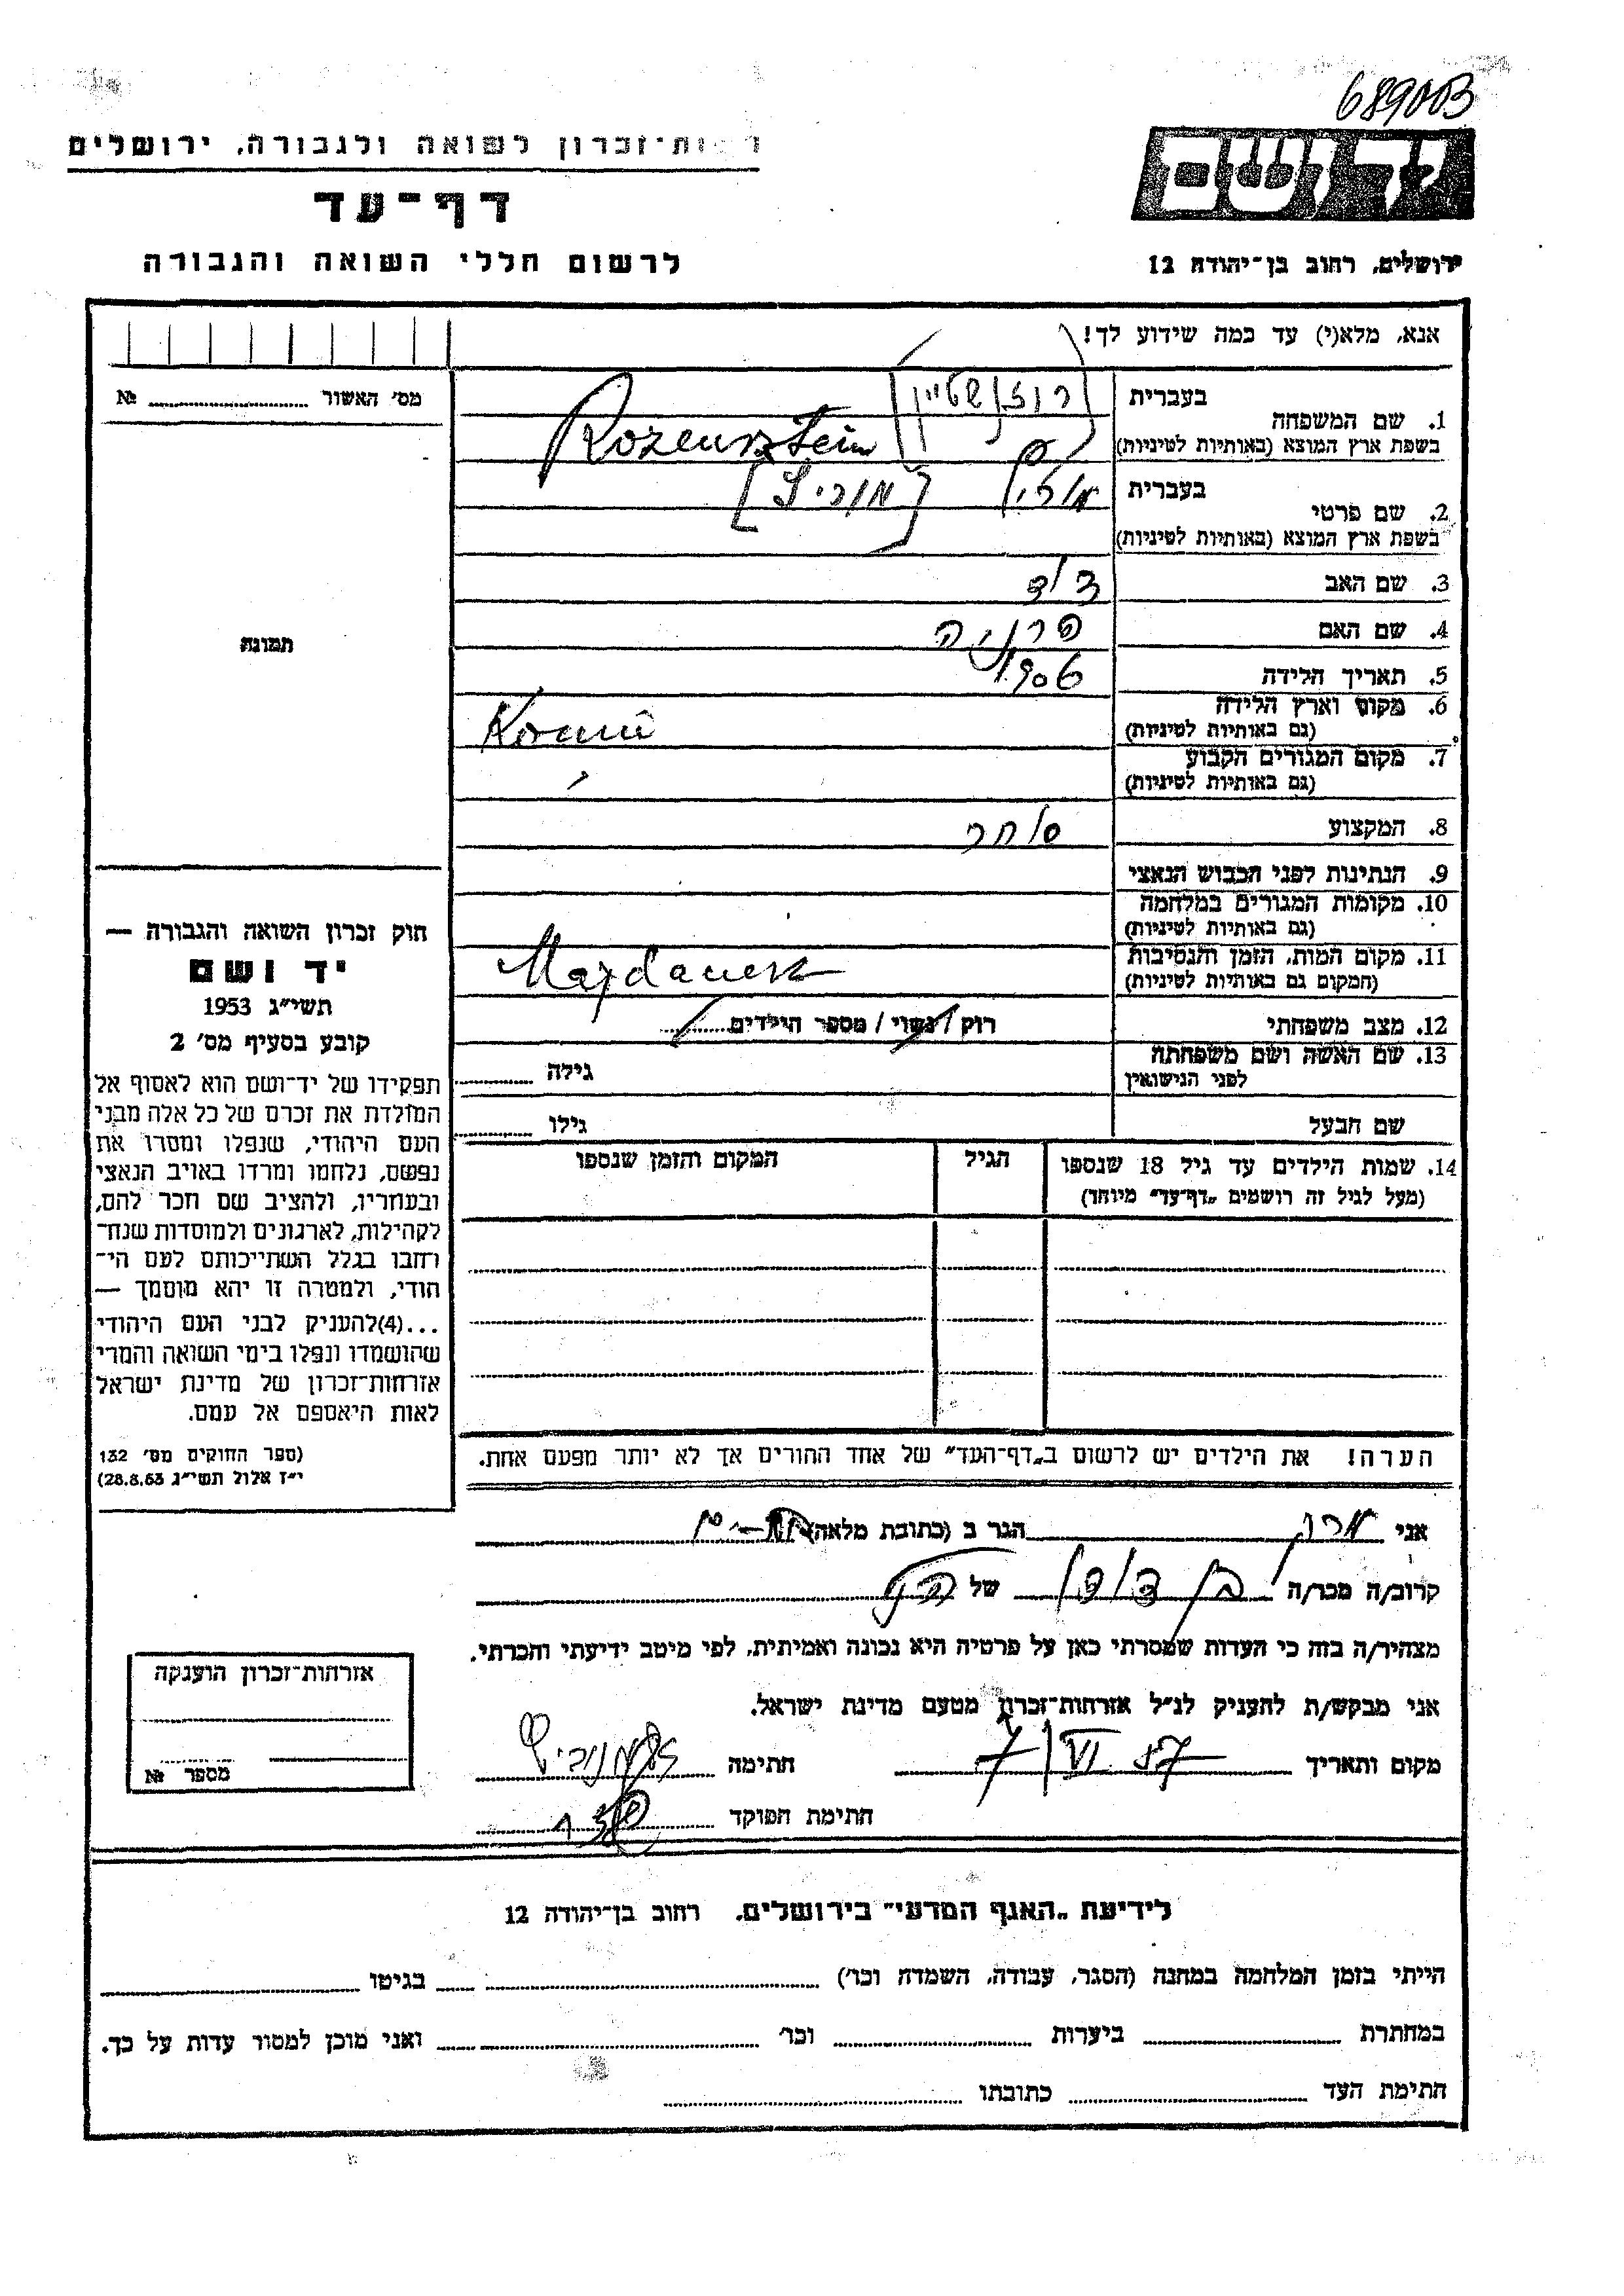 689003
רשות־זכרון לשואה ולגבורה, ירושלים
יד ושם
דף־עד
לרשום חללי השואה והגבורה
ירושלים, רחוב בן־יהודה 12
אנא, מלא(י) עד כמה שידוע לך!
מס׳ האשור № 
1. שם המשפחה
בעברית
רוזנשטיין
בשפת ארץ המוצא (באותיות לטיניות)
Rozensztein
2. שם פרטי
בעברית
[מוריץ]
בשפת ארץ המוצא (באותיות לטיניות)
3. שם האב
דוד
4. שם האם
פרניה
5. תאריך הלידה
1906
6. מקום וארץ הלידה
(גם באותיות לטיניות)
7. מקום המגורים הקבוע
(גם באותיות לטיניות)
8. המקצוע
סוחר
9. הנתינות לפני הכבוש הנאצי
10. מקומות המגורים במלחמה
(גם באותיות לטיניות)
11. מקום המות, הזמן והנסיבות
(המקום גם באותיות לטיניות)
Majdanek
12. מצב משפחתי
רוק / נשוי / מספר הילדים
13. שם האשה ושם משפחתה
לפני הנישואין
גילה
שם הבעל
גילו
14. שמות הילדים עד גיל 18 שנספו
(מעל לגיל זה רושמים „דף־עד״ מיוחד)
הגיל
המקום והזמן שנספו
הערה! את הילדים יש לרשום ב„דף־העד״ של אחד ההורים אך לא יותר מפעם אחת.
תמונה
חוק זכרון השואה והגבורה —
יד ושם
תשי״ג 1953
קובע בסעיף מס׳ 2
תפקידו של יד־ושם הוא לאסוף אל
המולדת את זכרם של כל אלה מבני
העם היהודי, שנפלו ומסרו את
נפשם, נלחמו ומרדו באויב הנאצי
ובעוזריו, ולהציב שם וזכר להם,
לקהילות, לארגונים ולמוסדות שנח־
רבו בגלל השתייכותם לעם הי־
הודי, ולמטרה זו יהא מוסמך —
...(4)להעניק לבני העם היהודי
שהושמדו ונפלו בימי השואה והמרי
אזרחות־זכרון של מדינת ישראל
לאות היאספם אל עמם.
(ספר החוקים מס׳ 132
י״ז אלול תשי״ג 28.8.53)
אני
הגר ב (כתובת מלאה)
קרוב/ה מכר/ה בן דודו של הנ״ל
מצהיר/ה בזה כי העדות שמסרתי כאן על פרטיה היא נכונה ואמיתית, לפי מיטב ידיעתי והכרתי.
אני מבקש/ת להעניק לנ״ל אזרחות־זכרון מטעם מדינת ישראל.
מקום ותאריך 7/VI 57 חתימה
חתימת הפוקד
אזרחות־זכרון הוענקה
מספר №
לידיעת „האגף המדעי״ בירושלים, רחוב בן־יהודה 12
הייתי בזמן המלחמה במחנה (הסגר, עבודה, השמדה וכו׳) בגיטו
במחתרת ביערות וכו׳ ואני מוכן למסור עדות על כך.
חתימת העד כתובתו